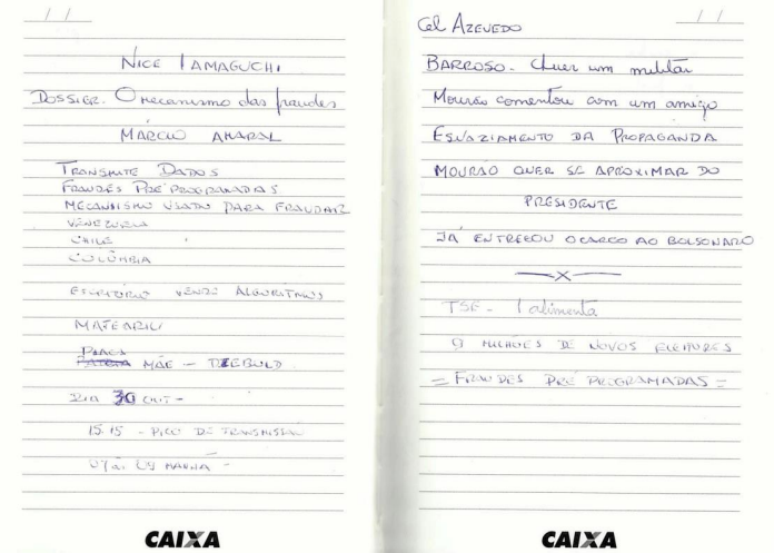 NICE YAMAGUCHI
DOSSIER. O mecanismo das fraudes
MÁRCIO AMARAL
TRANSMITE DADOS
FRAUDES PRÉ PROGRAMADAS
MECANISMO USADO PARA FRAUDAR
VENEZUELA
CHILE
COLÔMBIA
ESCRITÓRIO VENDE ALGORITMOS
PLACA
MÃE - DIEBOLD
DIA 30 OUT -
15.15 - PICO DE TRANSMISSÃO
CAIXA
Cel AZEVEDO
BARROSO - Quer um militar
Mourão comentou com um amigo
ESVAZIAMENTO DA PROPAGANDA
MOURÃO QUER SE APROXIMAR DO
PRESIDENTE
JÁ ENTREGOU O CARGO AO BOLSONARO
X
TSE - alimenta
9 MILHÕES DE NOVOS ELEITORES
= FRAUDES PRÉ PROGRAMADAS =
CAIXA